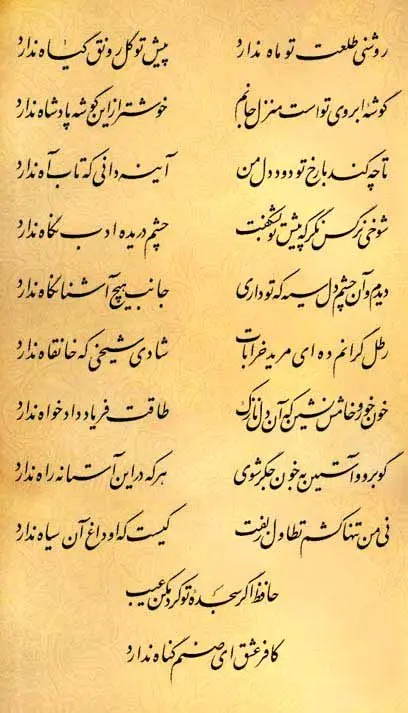 روشنی طلعت تو ماه ندارد پیش تو گل رونق گیاه ندارد
گوشهٔ ابروی تو است منزل جانم خوشتر از این گوشه پادشاه ندارد
تا چه کند با رخ تو دود دل من آینه دانی که تاب آه ندارد
شوخی نرگس نگر که پیش تو بشکفت چشم دریده ادب نگاه ندارد
دیدم و آن چشم دل سیه که تو داری جانب هیچ آشنا نگاه ندارد
رطل گرانم ده ای مرید خرابات شادی شیخی که خانقاه ندارد
خون خور و خامش نشین که آن دل نازک طاقت فریاد دادخواه ندارد
گو برو و آستین به خون جگر شوی هر که در این آستانه راه ندارد
نی من تنها کشم تطاول زلفت کیست که او داغ آن سیاه ندارد
حافظ اگر سجدهٔ تو کرد مکن عیب
کافر عشق ای صنم گناه ندارد